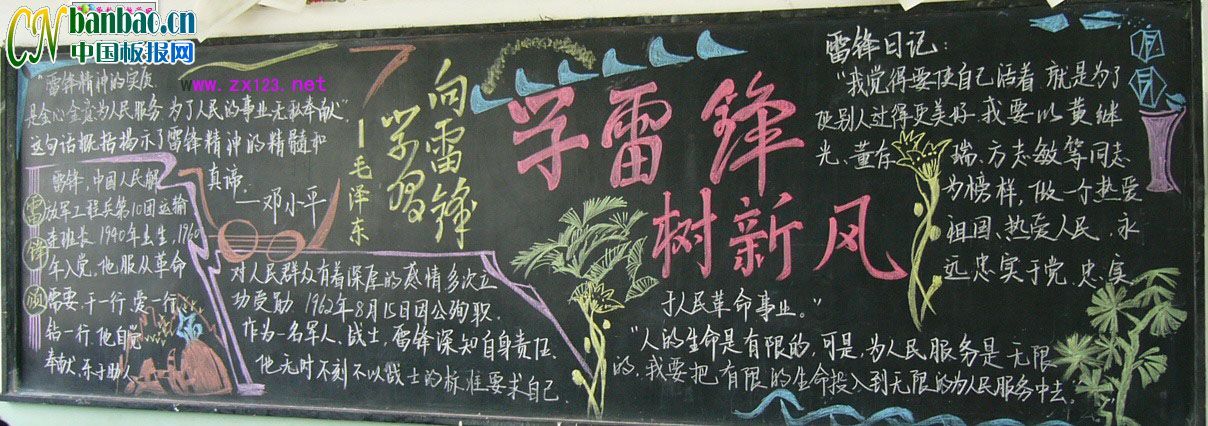 CN banbao.cn
中国板报网
www.zx123.net
"雷锋精神的实质
是全心全意为人民服务 为了人民的事业无私奉献"
这句话概括揭示了雷锋精神的精髓和
真谛.
—邓小平
向雷锋
学习
—毛泽东
雷锋颂
雷锋,中国人民解
放军工程兵第10团运输
连班长 1940年出生,1960
年入党。他服从革命
需要,干一行,爱一行
钻一行,他自觉
奉献,乐于助人
对人民群众有着深厚的感情,多次立
功受勋 1962年8月15日因公殉职.
作为一名军人、战士,雷锋深知自身责任.
他无时不刻不以战士的标准要求自己
学雷锋
树新风
雷锋日记:
"我觉得要使自己活着,就是为了
使别人过得更美好.我要以黄继
光、董存瑞、方志敏等同志
为榜样,做一个热爱
祖国、热爱人民、永
远忠实于党、忠实
于人民革命事业。"
"人的生命是有限的,可是,为人民服务是无限
的,我要把有限的生命投入到无限的为人民服务中去。"